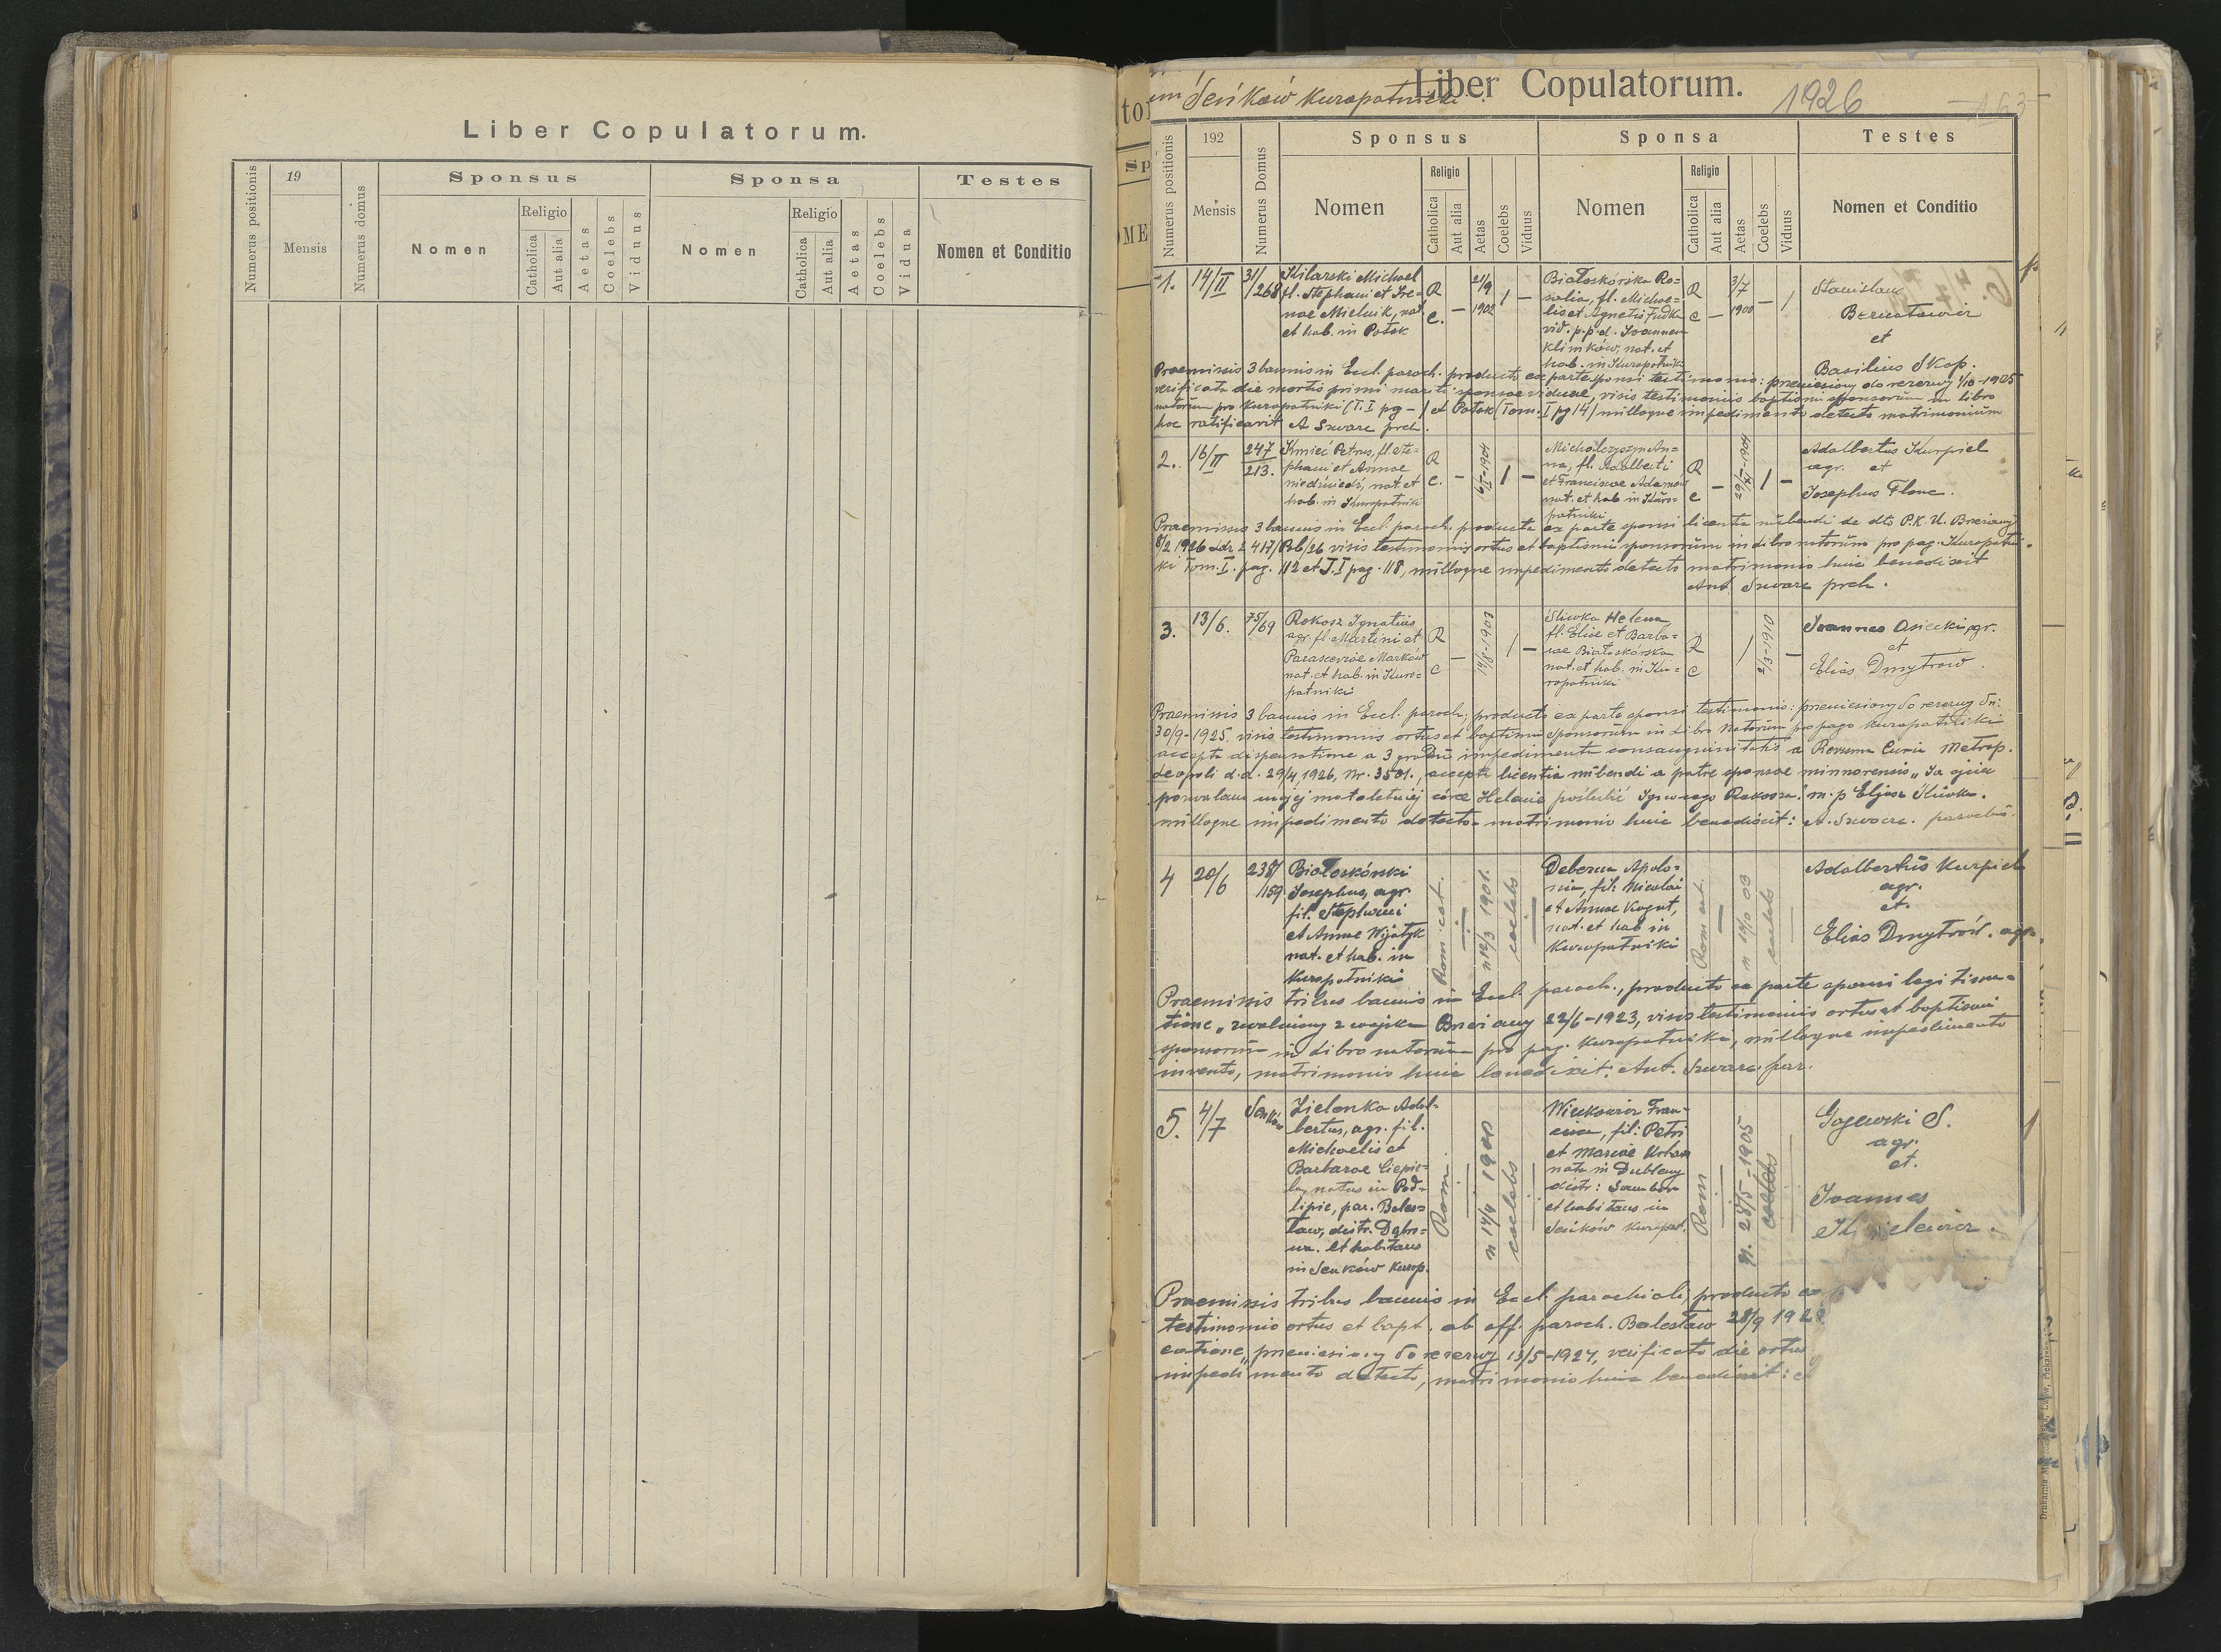 Liber Copulatorum.
Numerus positionis
19
Mensis
Numerus domus
Sponsus
Nomen
Religio
Catholica
Aut alia
Aetas
Coelebs
Viduus
Sponsa
Nomen
Religio
Catholica
Aut alia
Aetas
Coelebs
Vidua
Testes
Nomen et Conditio
Seńków Kuropatniki
Liber Copulatorum.
1926
163
Numerus positionis
192
Mensis
Numerus Domus
Sponsus
Nomen
Religio
Catholica
Aut alia
Aetas
Coelebs
Viduus
Sponsa
Nomen
Religio
Catholica
Aut alia
Aetas
Coelebs
Viduus
Testes
Nomen et Conditio
1.
14/II
31/268
Michael
fl. Stephani et Ire=
nae Mielnik, nat.
et hab. in Potok
R
c.
–
21/9
1902
1
–
Białoskórska Ro=
salia, fl. Michae=
lis et Agnetis Fudk
vid. p.p.d. Ioannem
Klimków, nat. et
hab. in Kuropatniki
R
c
–
3/7
1900
–
1
Stanislaus
Bernatowicz
et
Basilius Skop.
Praemissis 3 bannis in Eccl. paroch. producto ex parte sponsi testimonio: przeniesiony do rezerwy 1/10-1925
verificata die mortis primi mariti sponsae viduae, visis testimoniis baptismi sponsorum in libro
natorum pro Kuropatniki (T. I pg –) et Potok (Tom. I pg 14) nulloque impedimento detecto matrimonium
hoc ratificavit A Szwarc prch.
2.
16/II
247
213.
Kmieć Petrus, fl. Ste=
phani et Annae
niedźwiedź, nat. et
hab. in Kuropatniki
R
c.
–
1904
1
–
Michalczyszyn An=
na, fl. Adalberti
et Franciscae Adamów
nat. et hab. in Kuro=
patniki
R
c
–
1904
1
–
Adalbertus Kurpiel
agr. et
Josephus Flonc.
Praemissis 3 bannis in Eccl. paroch. producta ex parte sponsi licentia nubendi de dto P.K.U. Brzeżany
8/2 1926 Ldz 2417/Pob/26 visis testimoniis ortus et baptismi sponsorum in libro natorum pro pag. Kuropatni=
ki Tom. I. pag. 112 et T. I pag. 118, nulloque impedimento detecto matrimonio huic benedixit
Ant Szwarc prch.
3.
13/6.
75/69
Rokosz Ignatius
agr. fl. Martini et
Parasceviae Marków
nat. et hab. in Kuro=
patniki
R
c
–
14/8-1903
1
–
Śliwka Helena
fl. Eliae et Barba=
rae Białoskórska
nat. et hab. in Ku=
ropatniki
R
c
2/3-1910
–
Ioannes Osiecki agr.
et
Elias Dmytrow.
Praemissis 3 bannis in Eccl. paroch; producto ex parte sponsi testimonio: przeniesiony do rezerwy dn:
30/9-1925. visis testimoniis ortus et baptismi sponsorum in Libro Natorum pro pago Kuropatniki
accepta dispensatione a 3 gradu impedimenti consanguinitatis a Revma Curia Metrop.
Leopoli d.d. 29/4 1926, Nr. 3501., accepta licentia nubendi a patre sponsae minnorensis „Ja ojciec
pozwalam mojej małoletniej córce Helenie poślubić Ignacego Rokosza." m.p Eljasz Śliwka.
nulloque impedimento detecto matrimonio huic benedixit: A. Szwarc. parochus.
4
20/6
238/
159
Białoskórski
Josephus, agr.
fil. Stephani
et Annae Wijatyk
nat. et hab. in
Kuropatniki
Rom. cat.
–
n 19/3 1901.
coelebs
–
Deberna Apolo=
nia, fil: Nicolai
et Annae Kogut,
nat. et hab in
Kuropatniki
Rom cat.
–
n 14/10 03
coelebs
–
Adalbertus Kurpiel
agr.
et.
Elias Dmytrów. agr.
Praemissis tribus bannis in Eccl. paroch., producto ex parte sponsi legitima=
tione „zwolniony z wojska Brzeżany 22/6-1923, visis testimoniis ortus et baptismi
sponsorum in Libro natorum pro pag. Kuropatniki, nulloque impedimento
invento, matrimonio huic benedixit: Ant. Szwarc par.
5.
4/7
Senków
Zielonka Adal-
bertus, agr. fil.
Michaelis et
Barbarae Ciepie=
la, natus in Pod=
lipie, par. Boles=
ław, distr. Dąbro=
wa. et habitans
in Senków Kurop.
Rom.
–
n 17/4 1900
coelebs
–
Więckowicz Fran=
cisca, fil: Petri
et Mariae Urban
nata in Dublany
distr: Sambor
et habitans in
Seńków Kuropat.
Rom
–
n. 28/5-1905
coelebs
–
Gajewski S.
agr.
et.
Ioannes
Praemissis tribus bannis in Eccl. parochiali producto ex
testimonio ortus et bapt. ab off. paroch. Bolesław 28/9 192
catione „przeniesiony do rezerwy 13/5-1924, verificato die ortus
impedimento detecto, matrimonio huic benedixit: